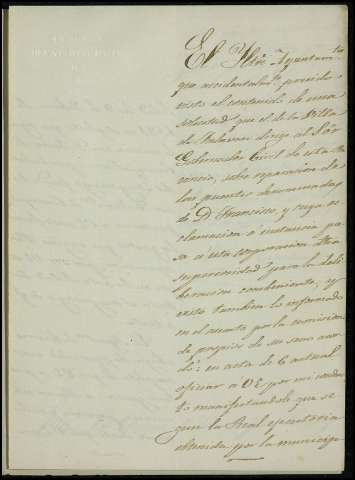 El Ylre. Ayuntamto
que accidentalmte. presido
visto el contenido de una
solicitud que el de la Villa
de dirige al Sor.
Gobernador Civil de esta Pro
vincia, sobre reparacion de
los puentes denominados
de Dn. Francisco, y cuya re
clamacion ó instancia pa
só a esta corporacion dha
superioridad para la deli
beracion combeniente, y
visto tambien lo informado
en el asunto por la comision
de propios de su seno acor
dó: en acta de 6 actual
oficiar a VE por mi conduc
to manifestandole que se
gun la Real ejecutoria
obtenida por la municipa